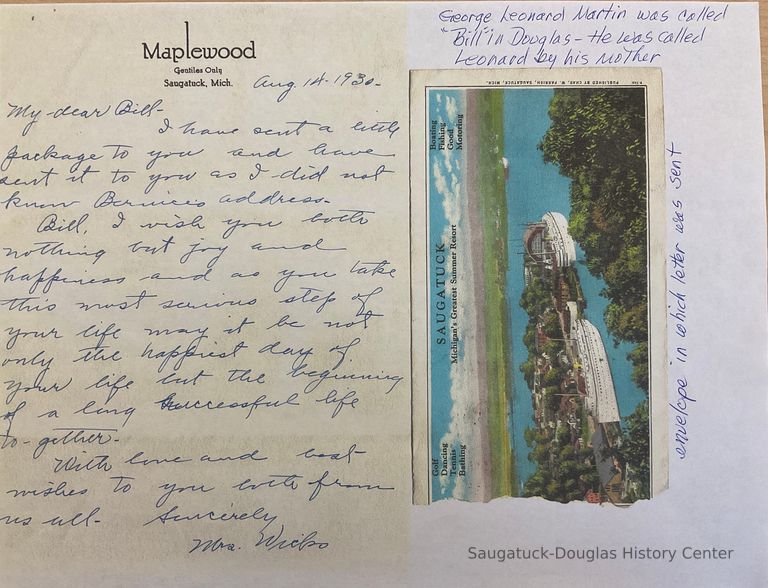 Maplewood
Gentiles Only
Saugatuck, Mich.
Aug. 14-1930-
My dear Bill-
I have sent a little
package to you and have
sent it to you as I did not
know Bernice's address.
Bill, I wish you both
nothing but joy and
happiness and as you take
this most serious step of
your life may it be not
only the happiest day of
your life but the beginning
of a long successful life
to-gether-
With love and best
wishes to you both from
us all- Sincerely
Mrs. Wicks
George Leonard Martin was called
"Bill" in Douglas - He was called
Leonard by his mother
PUBLISHED BY CHAS. W. PARRISH, SAUGATUCK, MICH.
Boating
Fishing
Good
Motoring
SAUGATUCK
Michigan's Greatest Summer Resort
Golf
Dancing
Tennis
Bathing
envelope in which letter was sent
Saugatuck-Douglas History Center